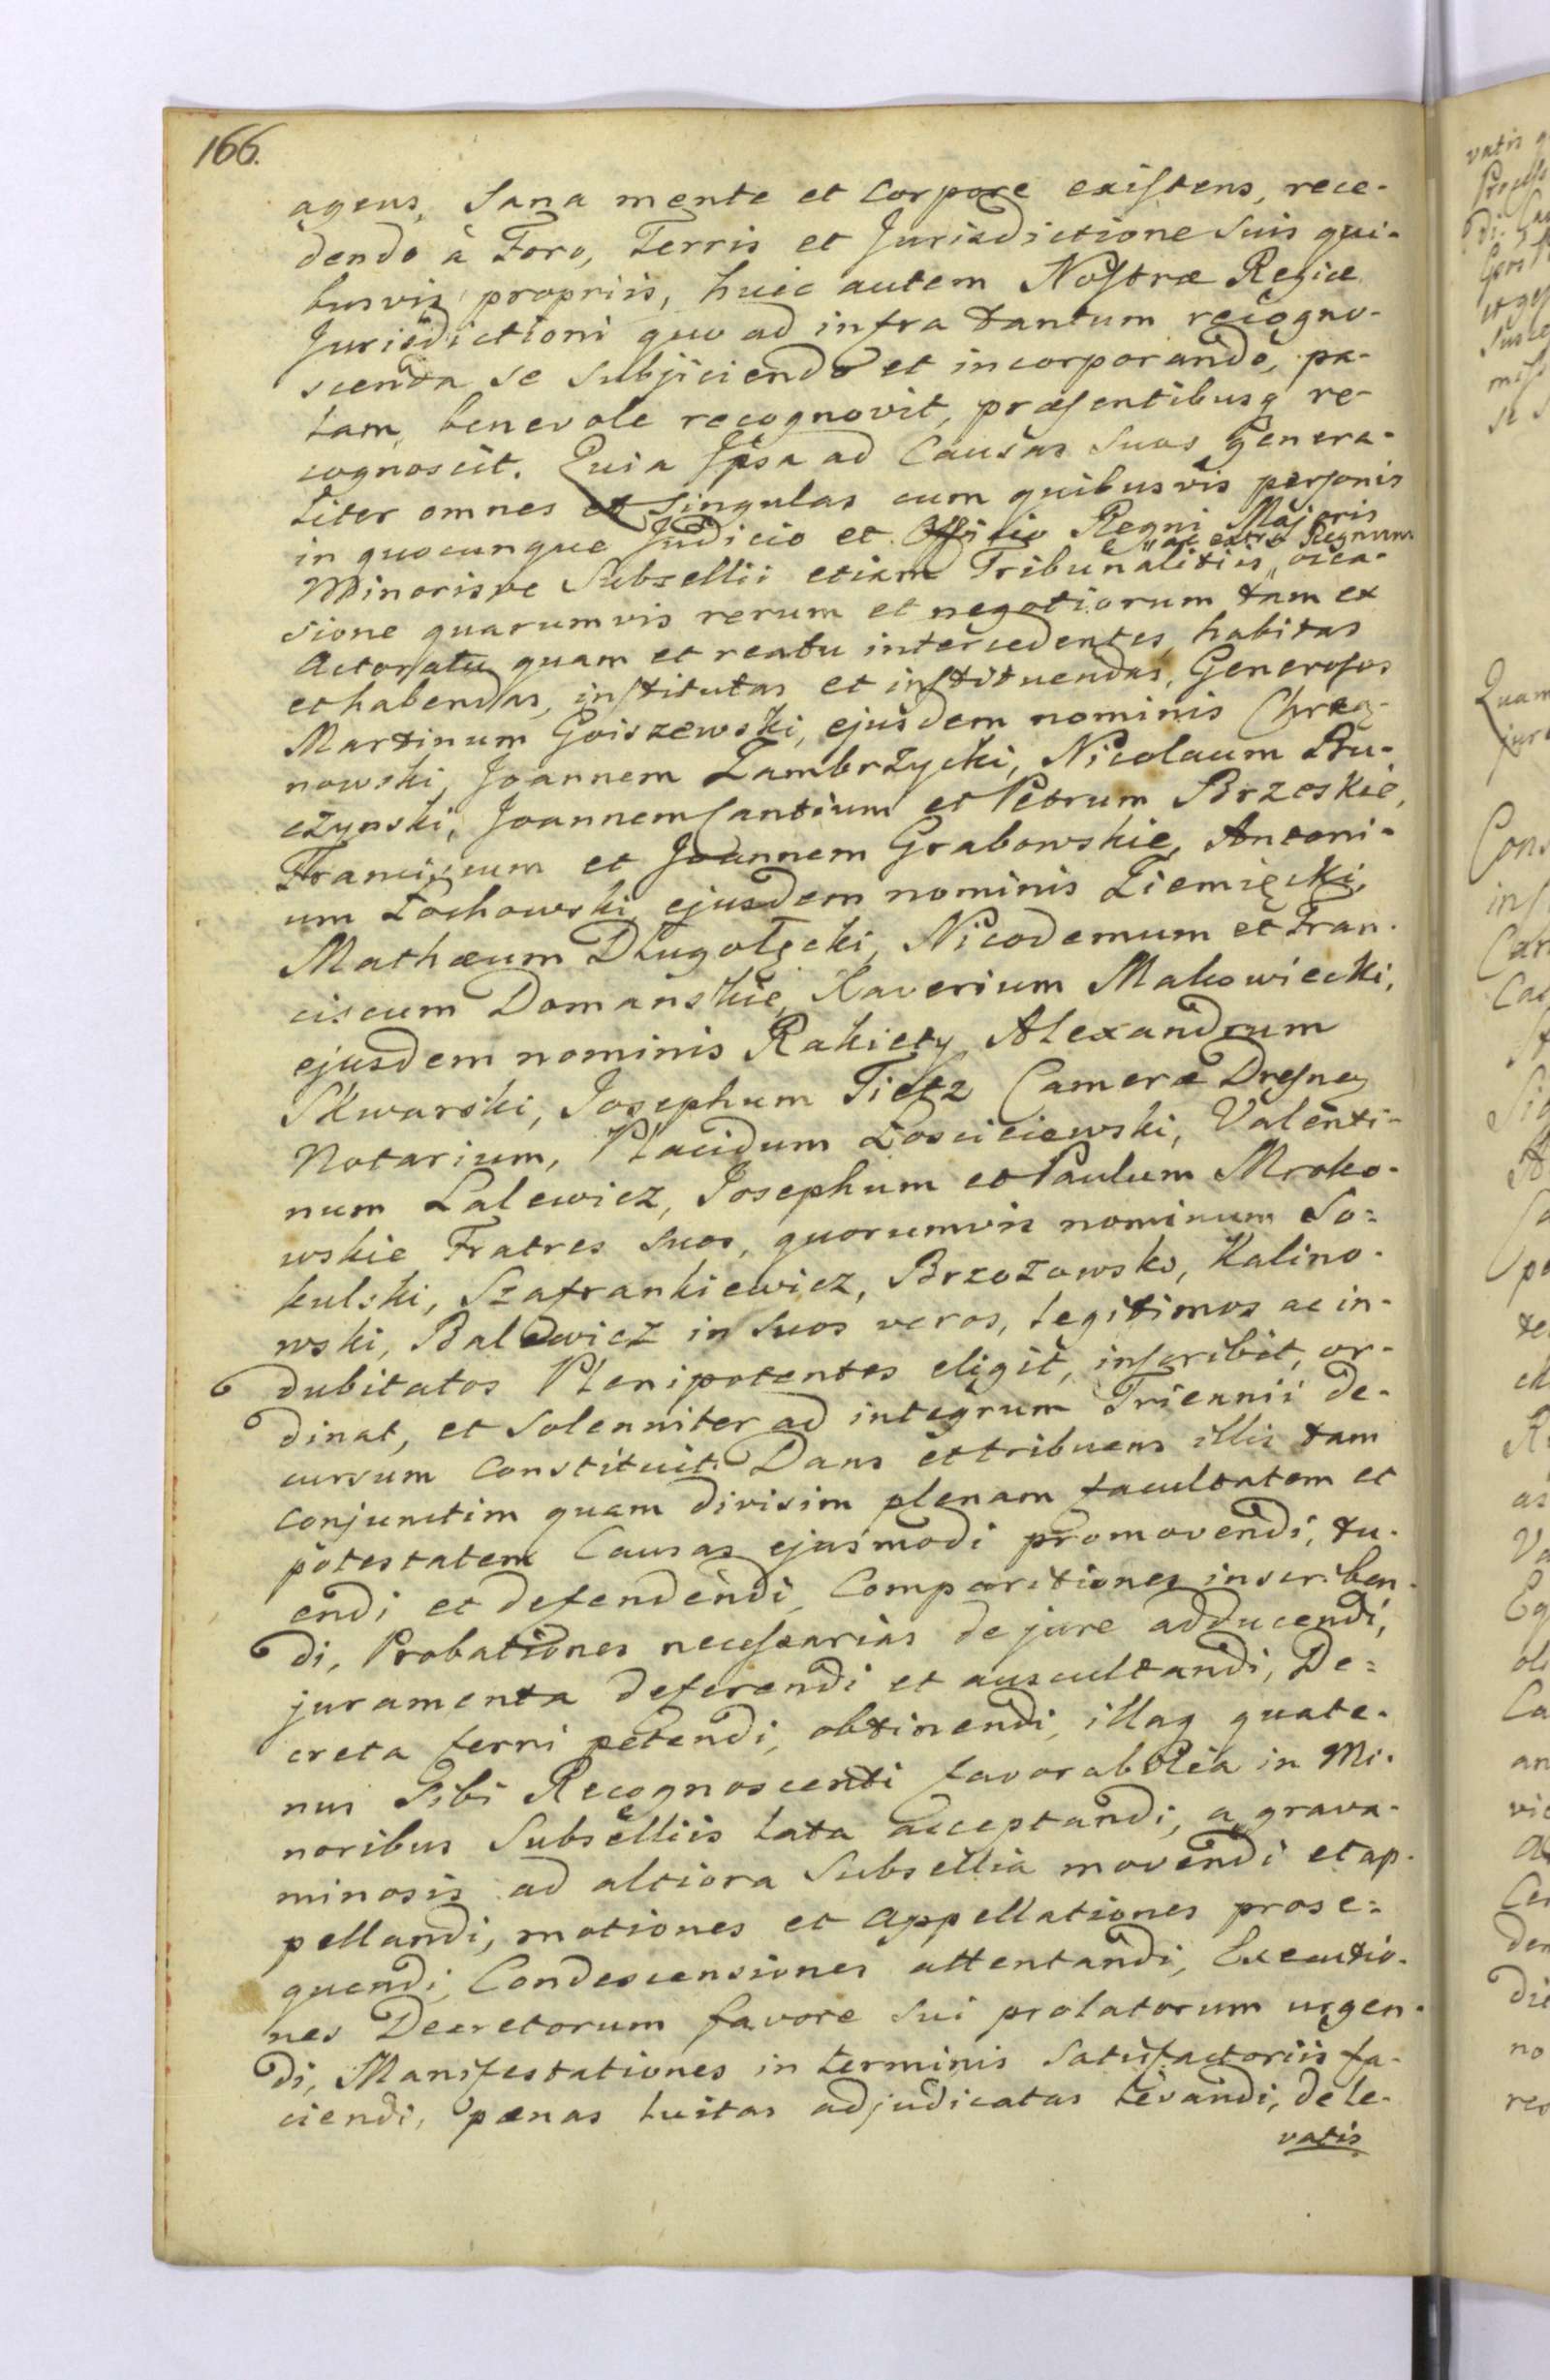 166.
agens, Sana mente et Corpore existens, rece-
dendo à Foro, Terris et Jurisdictione Suis qui-
busvis propriis, huic autem Nostræ Regiæ
Jurisdictioni quo ad infra tantum recogno-
scenda se Subjiciendo et incorporando, pa-
lam, benevole recognovit, præsentibusq re-
cognoscit. Quia Ipsa ad Causas Suas genera-
liter omnes et Singulas cum quibusvis personis
in quocunque Judicio et Officio Regni Majoris
Minorisve Subsellii etiam Tribunalitiis " ac extra Regnum occa-
sione quarumvis rerum et negotiorum tam ex
Actoratu quam et reatu intercedentes, habitas
et habendas, institutas et instituendas, Generosos
Martinum Goiszewski, ejusdem nominis Chrza-
nowski, Joannem Zambrzycki, Nicolaum Bu-
czynski, Joannem Cantium et Petrum Brzoskie,
Franciscum et Joannem Grabowskie, Antoni-
um Łochowski, ejusdem nominis Ziemięcki,
Mathæum Długołęcki, Nicodemum et Fran-
ciscum Domanskie, Xaverium Makowiecki,
ejusdem nominis Rakiety, Alexandrum
Skwarski, Josephum Tietz Cameræ
Notarium, Placidum Łosciciewski, Valenti-
num Lalewicz, Josephum et Paulum Mroko-
wskie Fratres Suos, quorumvis nominum So=
kulski, Szafrankiewicz, Brzozowski, Kalino-
wski, Balewicz in Suos veros, legitimos ac in-
dubitatos Plenipotentes eligit, inscribit, or-
dinat, et Solenniter ad integrum Triennii de-
cursum Constituit. Dans et tribuens illis tam
conjunctim quam divisim plenam facultatem et
potestatem Causas ejusmodi promovendi, tu-
endi et defendendi, Comparitiones inscriben-
di, Probationes necessarias de jure adducendi,
juramenta deferendi et auscultandi, De=
creta ferri petendi, obtinendi, illaq quate-
nus Sibi Recognoscenti favorabilia in Mi-
noribus Subselliis lata acceptandi, a grava-
minosis ad altiora Subsellia movendi et ap-
pellandi, motiones et appellationes prose=
quendi, Condescensiones attentandi, Executio-
nes Decretorum favore Sui prolatorum urgen-
di, Manifestationes in terminis Satisfactoriis fa-
ciendi, pænas luitas adjudicatas levandi, de le-
vatis